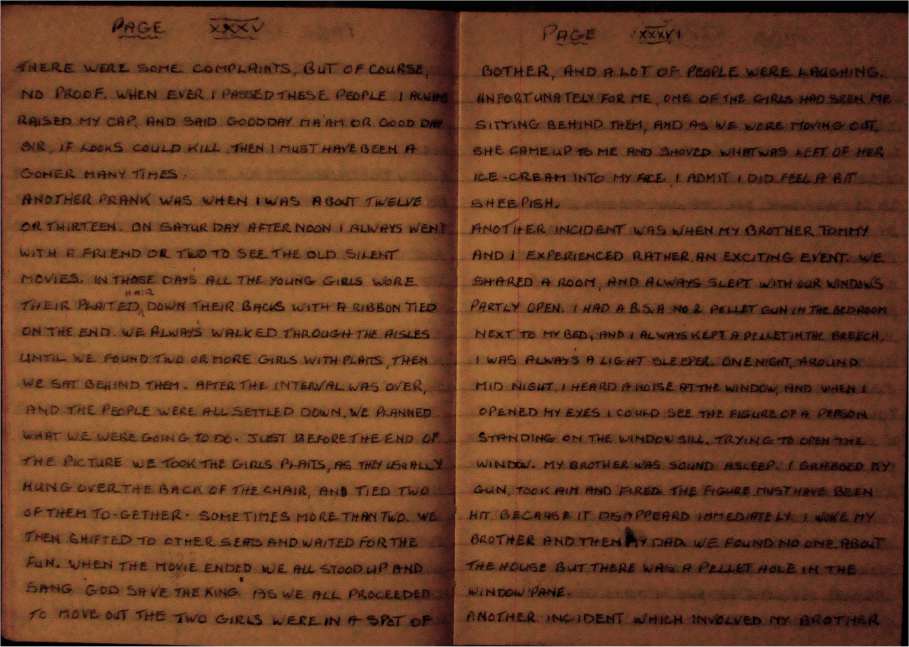 PAGE XXXV
THERE WERE SOME COMPLAINTS, BUT OF COURSE,
NO PROOF. WHEN EVER I PASSED THESE PEOPLE I ALWAYS
RAISED MY CAP, AND SAID GOODDAY MA'AM OR GOOD DAY
SIR, IF LOOKS COULD KILL THEN I MUST HAVE BEEN A
GONER MANY TIMES.
ANOTHER PRANK WAS WHEN I WAS ABOUT TWELVE
OR THIRTEEN. ON SATURDAY AFTER NOON I ALWAYS WENT
WITH A FRIEND OR TWO TO SEE THE OLD SILENT
MOVIES. IN THOSE DAYS ALL THE YOUNG GIRLS WORE
THEIR PLAITED HAIR DOWN THEIR BACKS WITH A RIBBON TIED
ON THE END. WE ALWAYS WALKED THROUGH THE AISLES
UNTIL WE FOUND TWO OR MORE GIRLS WITH PLAITS, THEN
WE SAT BEHIND THEM. AFTER THE INTERVAL WAS OVER,
AND THE PEOPLE WERE ALL SETTLED DOWN, WE PLANNED
WHAT WE WERE GOING TO DO. JUST BEFORE THE END OF
THE PICTURE WE TOOK THE GIRLS PLAITS, AS THEY USUALLY
HUNG OVER THE BACK OF THE CHAIR, AND TIED TWO
OF THEM TO-GETHER. SOMETIMES MORE THAN TWO. WE
THEN SHIFTED TO OTHER SEATS AND WAITED FOR THE
FUN. WHEN THE MOVIE ENDED WE ALL STOOD UP AND
SANG "GOD SAVE THE KING" AS WE ALL PROCEEDED
TO MOVE OUT THE TWO GIRLS WERE IN A SPOT OF
PAGE XXXVI
BOTHER, AND A LOT OF PEOPLE WERE LAUGHING.
UNFORTUNATELY FOR ME, ONE OF THE GIRLS HAD SEEN ME
SITTING BEHIND THEM, AND AS WE WERE MOVING OUT,
SHE CAME UP TO ME AND SHOVED WHAT WAS LEFT OF HER
ICE-CREAM INTO MY FACE. I ADMIT I DID FEEL A BIT
SHEEPISH.
ANOTHER INCIDENT WAS WHEN MY BROTHER TOMMY
AND I EXPERIENCED RATHER AN EXCITING EVENT. WE
SHARED A ROOM, AND ALWAYS SLEPT WITH OUR WINDOWS
PARTLY OPEN. I HAD A B.S.A. NO 2 PELLET GUN IN THE BEDROOM
NEXT TO MY BED, AND I ALWAYS KEPT A PELLET IN THE BREECH.
I WAS ALWAYS A LIGHT SLEEPER. ONE NIGHT, AROUND
MID NIGHT. I HEARD A NOISE AT THE WINDOW, AND WHEN I
OPENED MY EYES I COULD SEE THE FIGURE OF A PERSON
STANDING ON THE WINDOW SILL. TRYING TO OPEN THE
WINDOW. MY BROTHER WAS SOUND ASLEEP. I GRABBED MY
GUN, TOOK AIM AND FIRED. THE FIGURE MUST HAVE BEEN
HIT BECAUSE IT DISAPPEARD IMMEDIATELY. I WOKE MY
BROTHER AND THEN MY DAD. WE FOUND NO ONE ABOUT
THE HOUSE BUT THERE WAS A PELLET HOLE IN THE
WINDOW PANE.
ANOTHER INCIDENT WHICH INVOLVED MY BROTHER